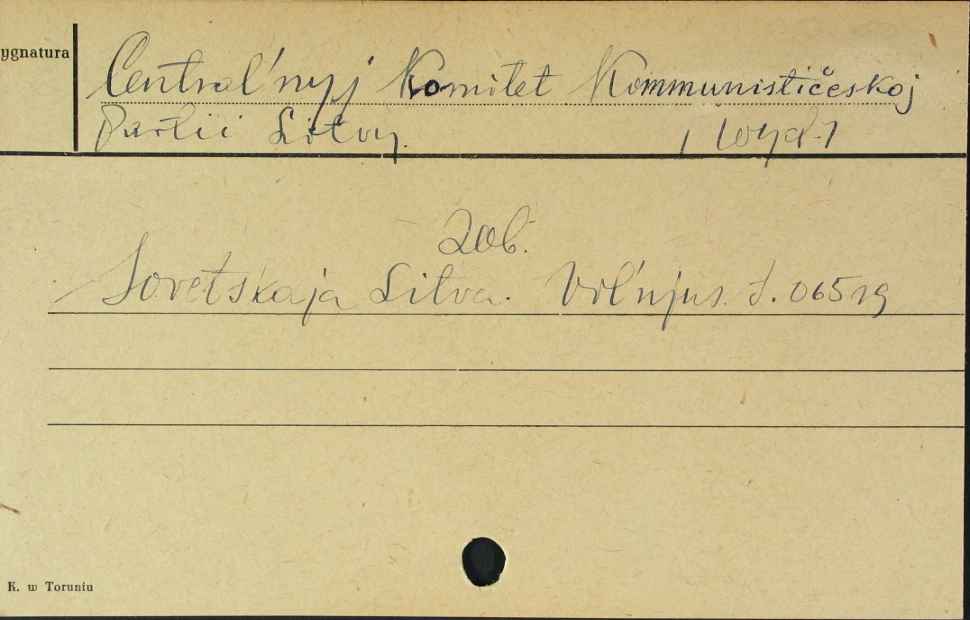 ygnatura
Central'nyj Komitet Kommunističeskoj
Partii Litvy. / wyd. /
Zob.
Sovetskaja Litva. Vil'njus. S. 06519
K. w Toruniu